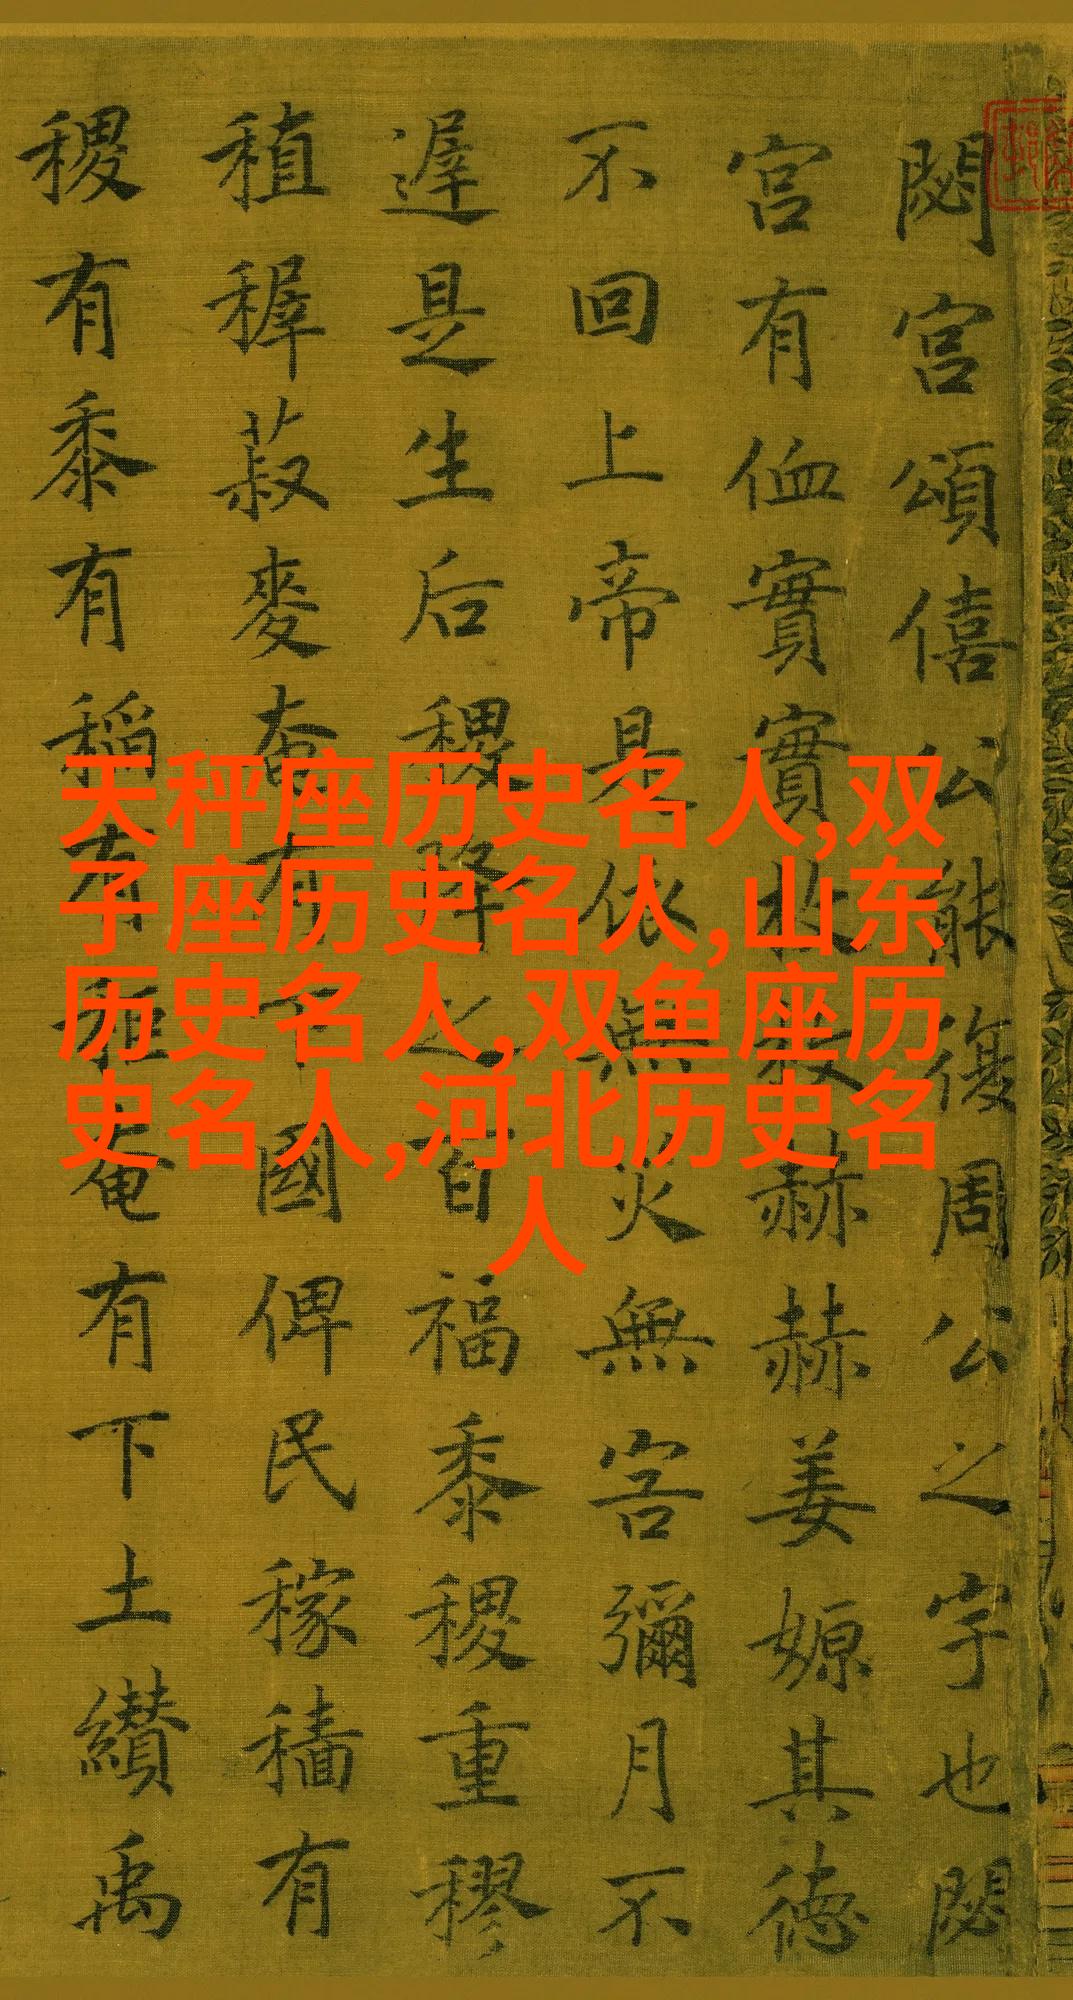 閟宮頌僖公能復周公之宇也閟
宮有侐實實枚枚赫赫姜嫄其德
不回上帝是依無災無害彌月不
遲是生后稷降之百福黍稷重穋
稙稺菽麥奄有下國俾民稼穡有
稷有黍有稻有秬奄有下土纘禹
天秤座历史名人,双
子座历史名人,山东
历史名人,双鱼座历
史名人,河北历史名
人